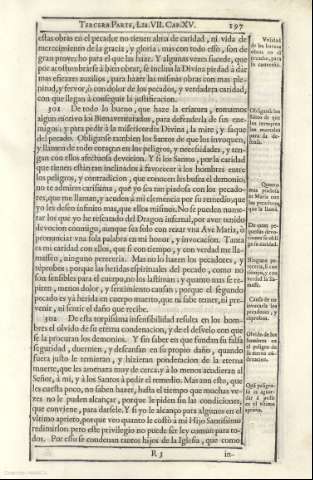 TERCERA PARTE, LIB. VII. CAP. XV. 197
estas obras en el pecador no tienen alma de caridad, ni vida de
merecimiento de la gracia, y gloria; mas con todo esso, son de
gran provecho para el que las haze. Y algunas vezes sucede, que
por acostumbrarse à bien obrar, se inclina la Divina piedad à dar
mas eficazes auxilios, para hazer las mismas obras con mas ple-
nitud, y fervor, ò con dolor de los pecados, y verdadera caridad,
con que llegan à conseguir la justificacion.
301. De todo lo bueno, que haze la criatura, tomamos
algun motivo los Bienaventurados, para defenderla de sus ene-
migos; y para pedir à la misericordia Divina, la mire, y saque
del pecado. Obliganse tambien los Santos de que los invoquen,
y llamen de todo coraçon en los peligros, y necessidades, y ten-
gan con ellos afectuosa devocion. Y si los Santos, por la caridad
que tienen estàn tan inclinados à favorecer à los hombres entre
los peligros, y contradicion, que conocen les busca el demonio;
no te admires carissima, que yo sea tan piadosa con los pecado-
res, que me llaman, y acuden à mi clemencia por su remedio; que
yo les deseo infinito mas, que ellos mismos. No se pueden nume-
rar los que yo he rescatado del Dragon infernal, por aver tenido
devocion conmigo, aunque sea solo con rezar vna Ave Maria, ò
pronunciar vna sola palabra en mi honor, y invocacion. Tanta
es mi caridad con ellos, que si con tiempo, y con verdad me lla-
massen, ninguno pereceria. Mas no lo hazen los pecadores, y
reprobos; porque las heridas espirituales del pecado, como no
son sensibles para el cuerpo, no los lastiman; y quanto mas se re-
piten, menos dolor, y sentimiento causan: porque el segundo
pecado es yà herida en cuerpo muerto, que ni sabe temer, ni pre-
venir, ni sentir el daño que recibe.
302. De esta torpissima insensibilidad resulta en los hom-
bres el olvido de su eterna condenacion, y de el desvelo con que
se la procuran los demonios. Y sin saber en que fundan su falsa
seguridad, duermen, y descansan en su propio daño, quando
fuera justo le temieran, y hizieran ponderacion de la eterna
muerte, que les amenaza muy de cerca; y à lo menos acudieran al
Señor, à mi, y à los Santos à pedir el remedio. Mas aun esto, que
les cuesta poco, no saben hazer, hasta el tiempo que muchas ve-
zes no le puden alcançar, porque le piden sin las condiciones,
que conviene, para darsele. Y si yo le alcanço para algunos en el
vltimo aprieto, porque veo quanto le costò à mi Hijo Santissimo
redimirlos; pero este privilegio no puede ser ley comun para to-
dos. Por esso se condenan tantos hijos de la Iglesia, que como
R 3 in-
Obliganse los
Santos de que
los invoquen
Quanto
mas piadosa
es Maria con
los pecadores
que la llaman.
Ninguno pe-
receria, si con
tiempo, y con
verdad la lla-
masse.
Olvido de los
hombres en
el peligro de
su eterna co-
denacion.